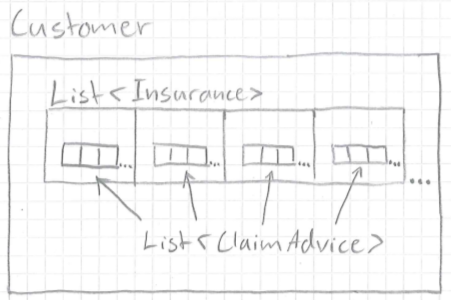 Customer
List<Insurance>
...
...
...
...
...
List<ClaimAdvice>